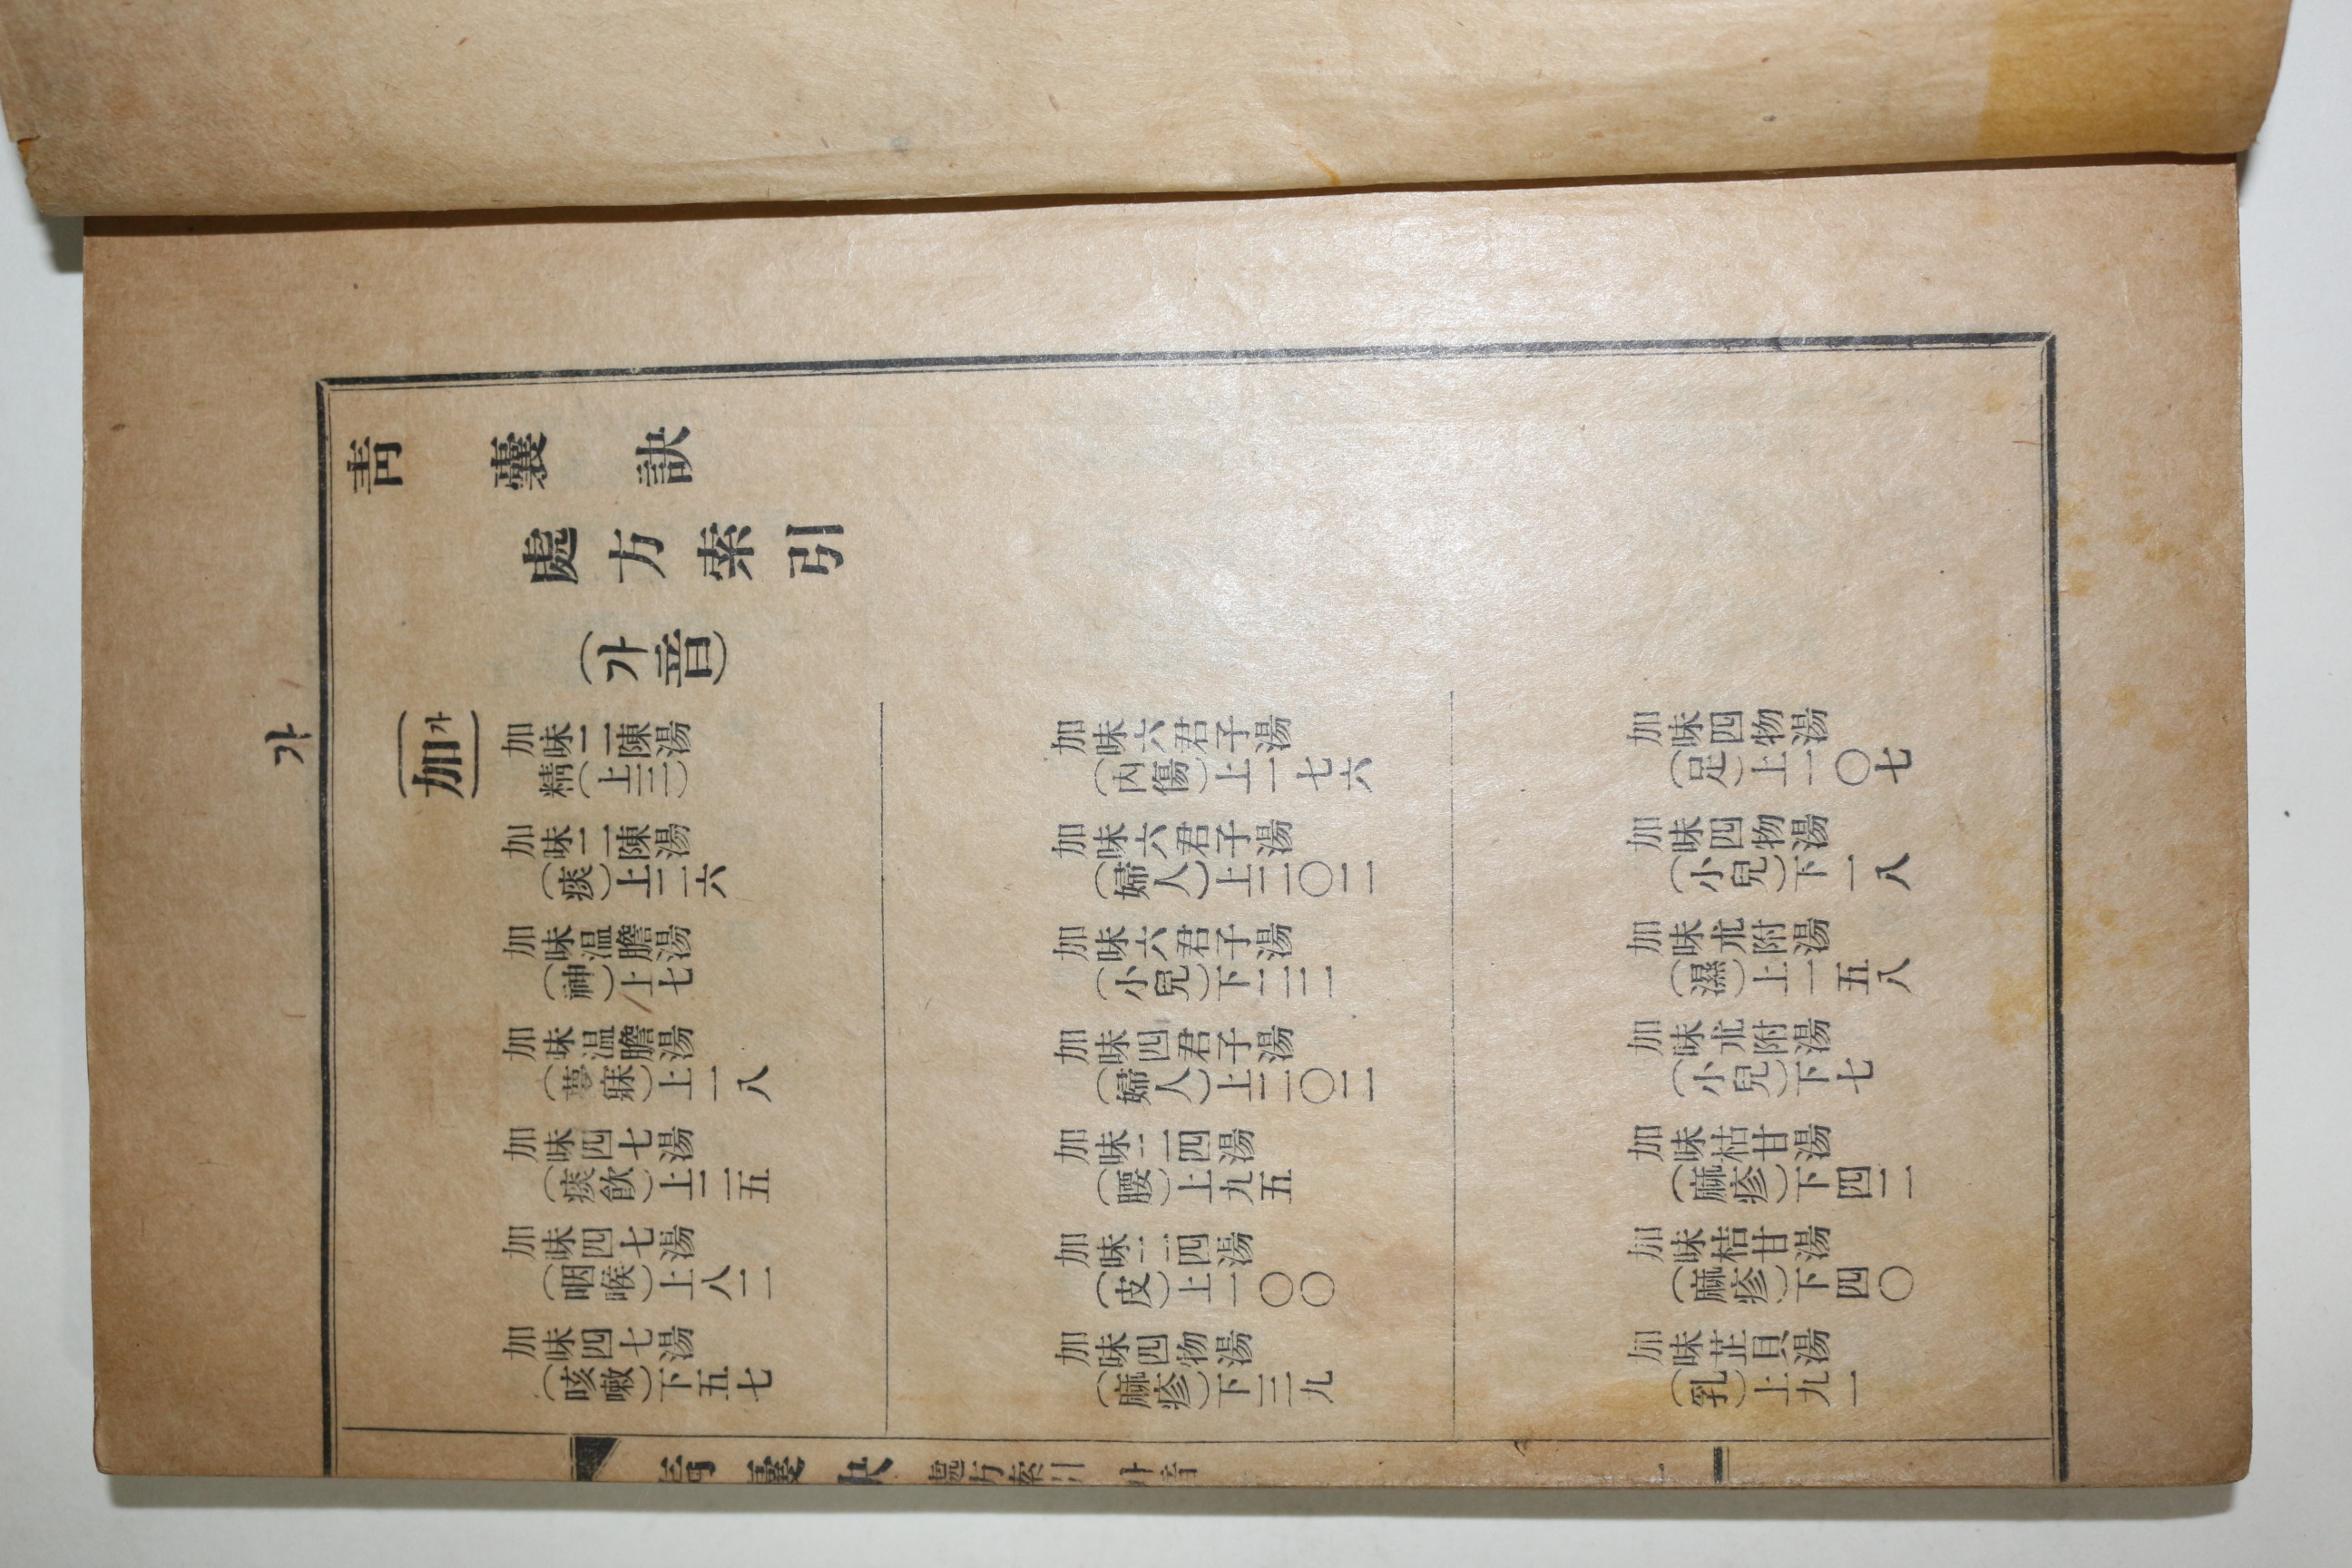 가
靑囊訣
處方索引
(가音)
(加가)
加味二陳湯
精(上三)
加味二陳湯
(痰)上二六
加味温膽湯
(神)上七
加味温膽湯
(夢寐)上一八
加味四七湯
(痰飮)上二五
加味四七湯
(咽喉)上八二
加味四七湯
(咳嗽)下五七
加味六君子湯
(內傷)上一七六
加味六君子湯
(婦人)上二〇二
加味六君子湯
(小兒)下二二
加味四君子湯
(婦人)上二〇二
加味二四湯
(腰)上九五
加味二四湯
(皮)上一〇〇
加味四物湯
(麻疹)下三九
加味四物湯
(足)上一〇七
加味四物湯
(小兒)下一八
加味朮附湯
(濕)上一五八
加味朮附湯
(小兒)下七
加味枯甘湯
(麻疹)下四二
加味桔甘湯
(麻疹)下四〇
加味芷貝湯
(乳)上九一
靑囊訣 處方索引 가音 一